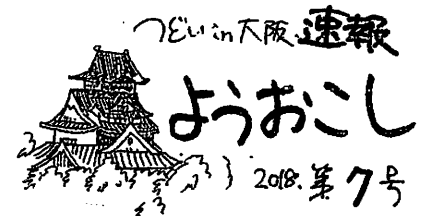 つどい in 大阪 速報
ようおこし
2018. 第7号